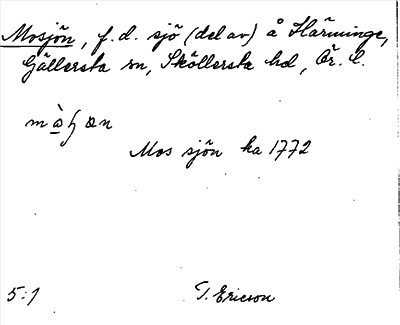 Mosjön, f.d. sjö (del av) å Härminge,
Gällersta sn, Sköllersta hd, Ör. l.
Mos sjön ka 1772
5:1
T. Ericson